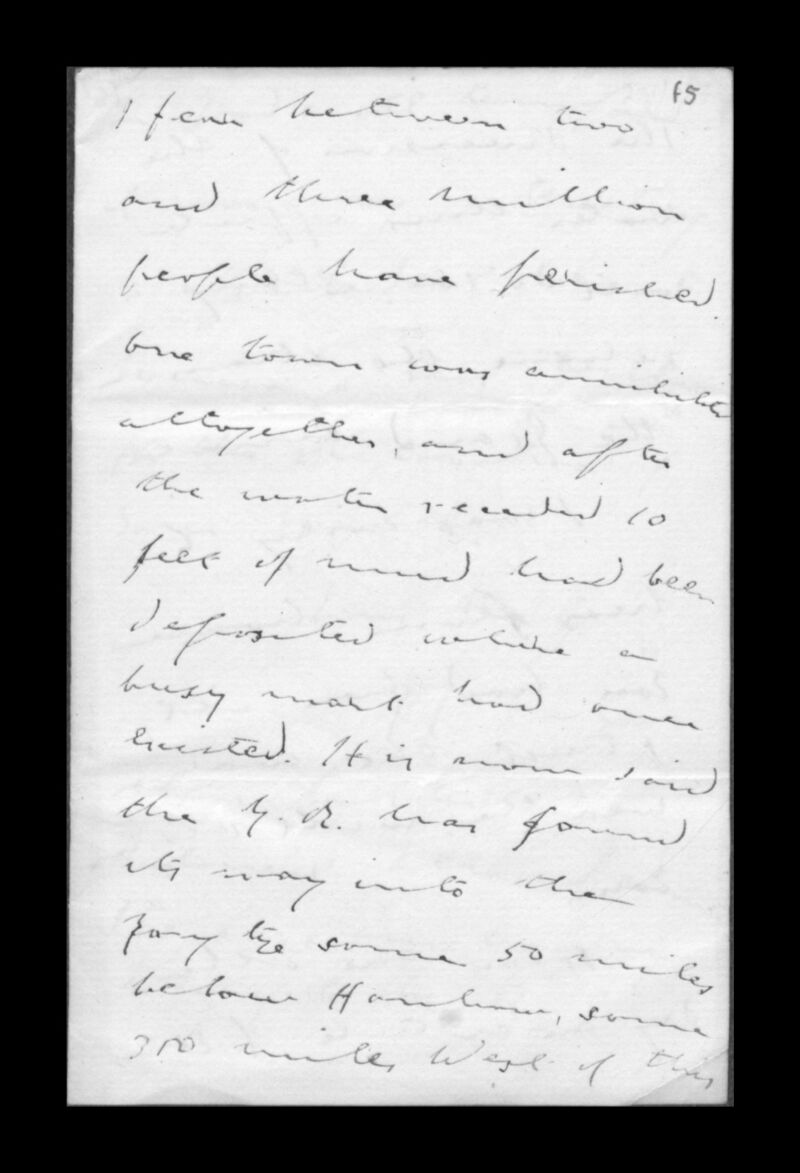 15
I fear between two
and three million
people have perished.
One town was annihilated
altogether, and after
the water receded 10
feet of mud had been
deposited where a
busy mart had once
existed. It is now said
the Y. R. has found
its way into the
Yang tze some 50 miles
below Hankow, some
350 miles West of this